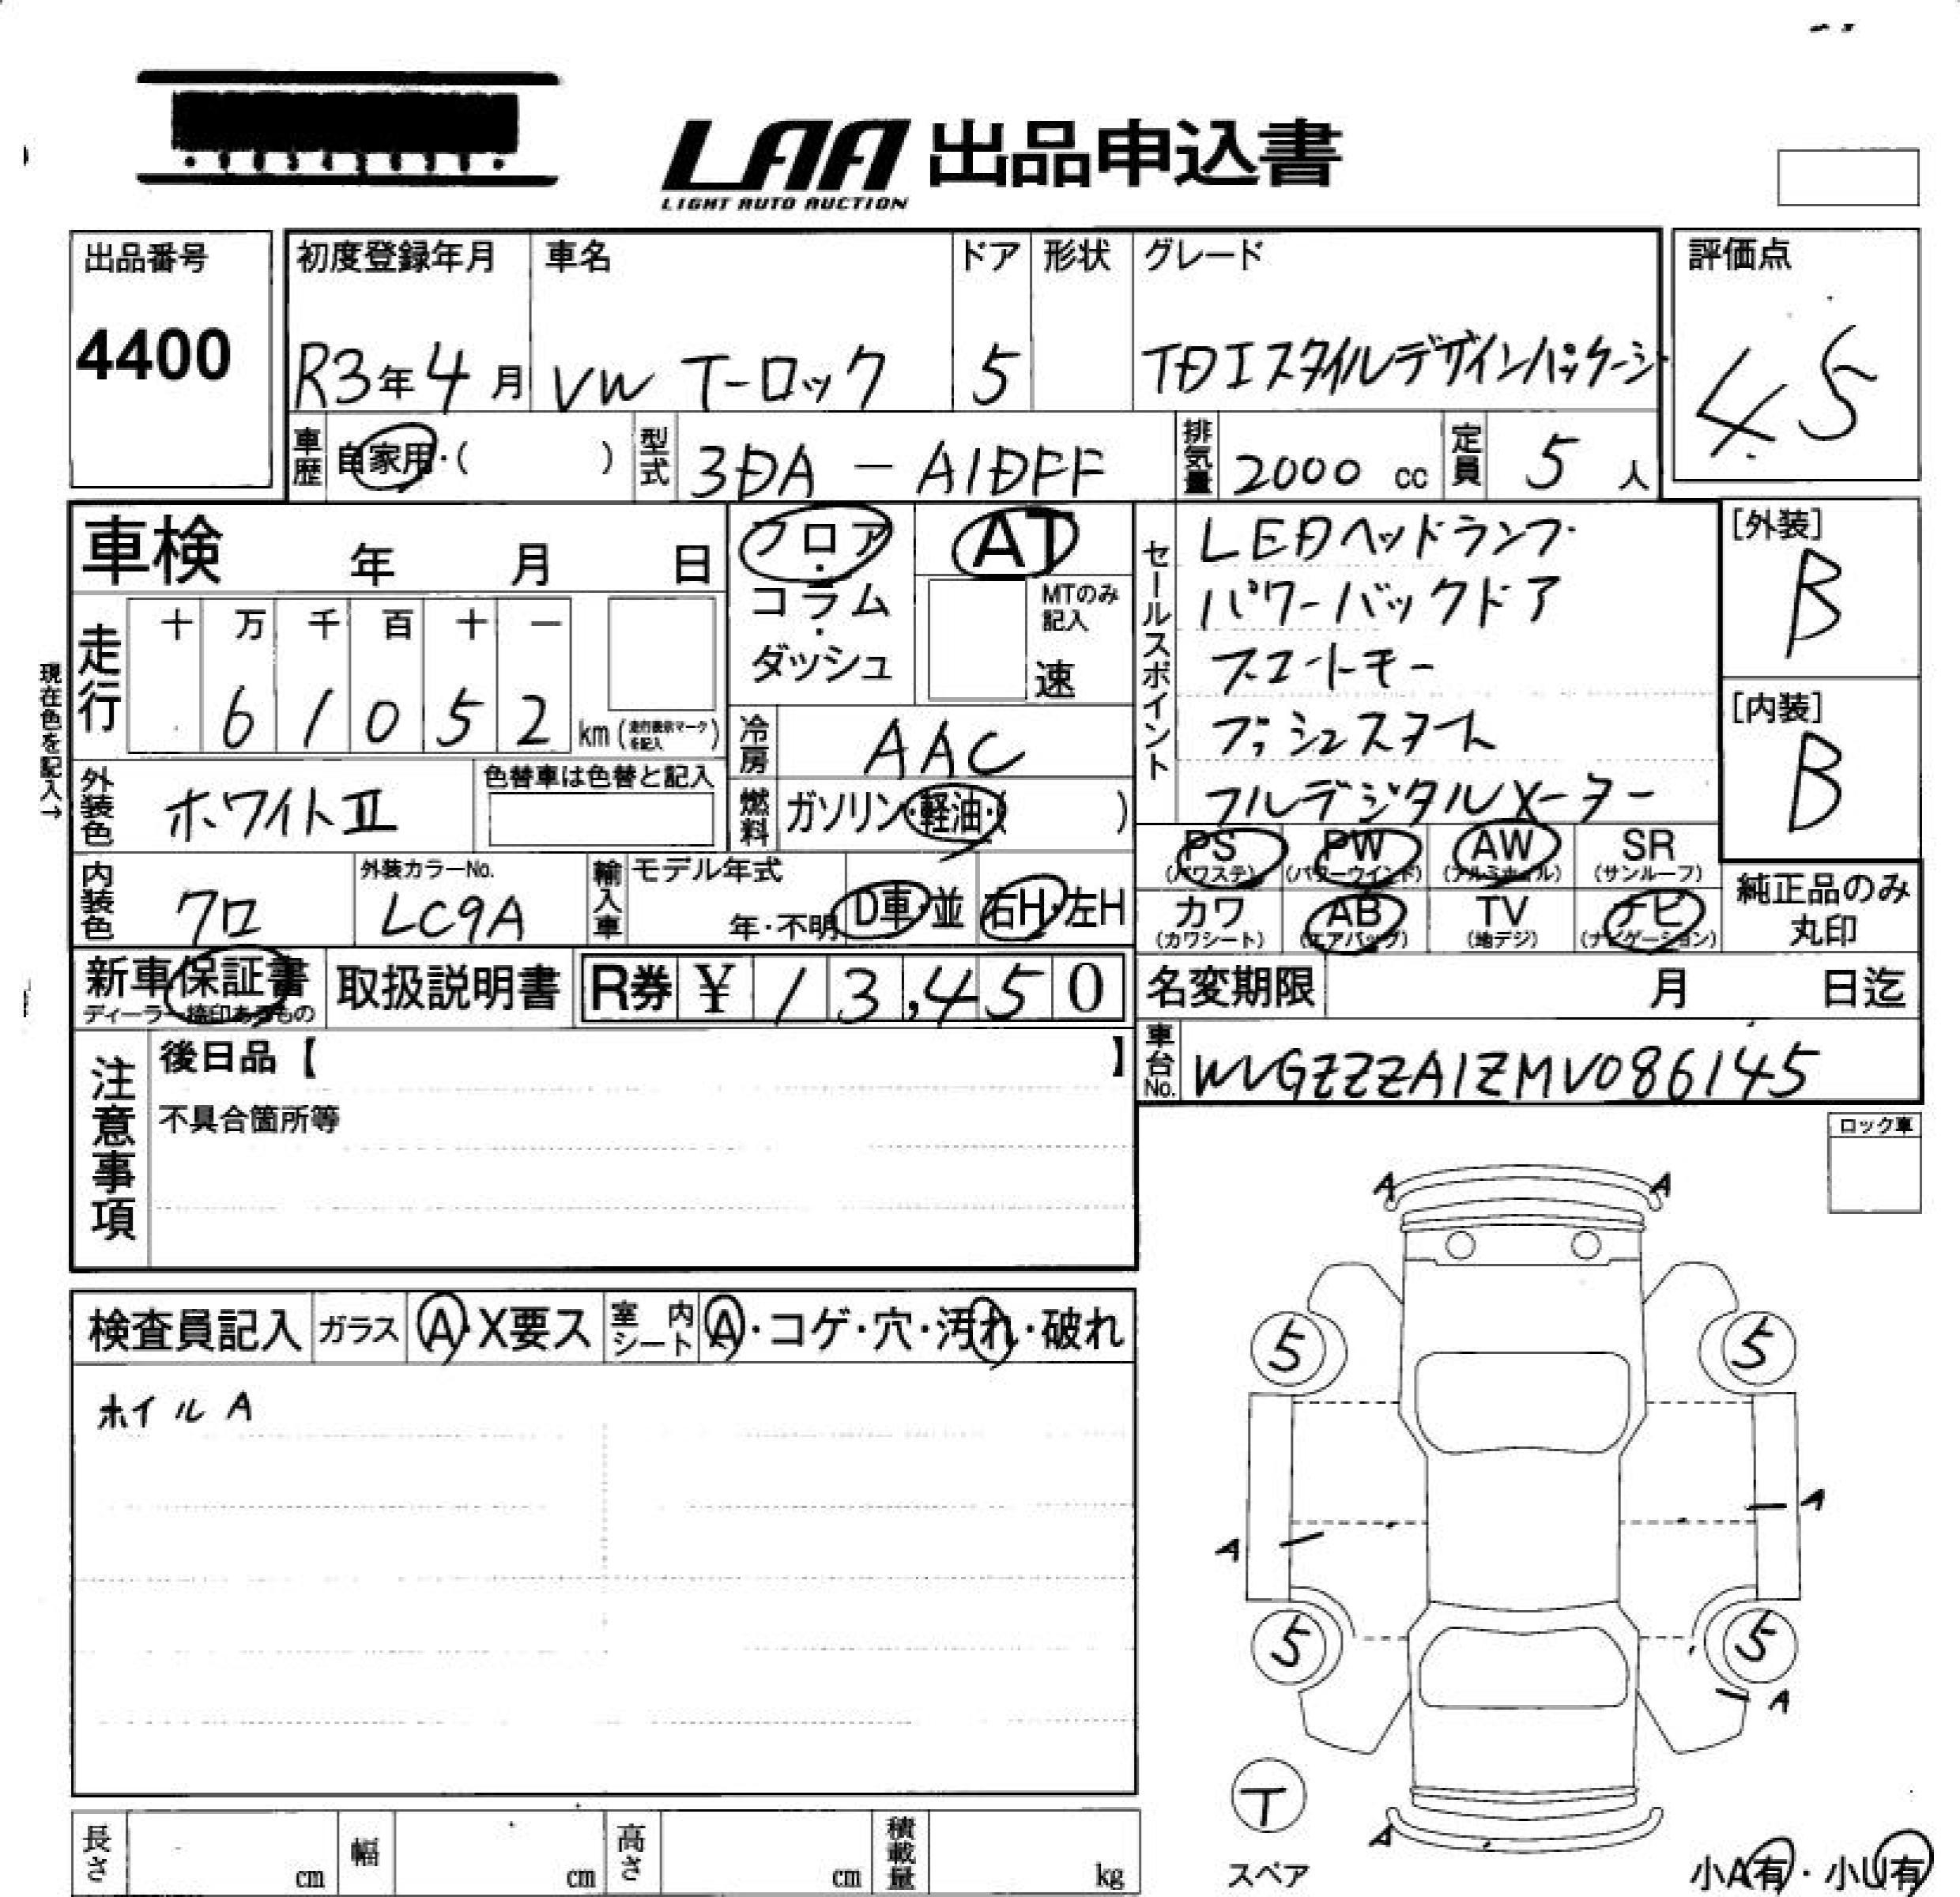 LAA 出品申込書
LIGHT AUTO AUCTION
出品番号
4400
初度登録年月
R3年4月
車名
VW T-ロック
ドア
5
形状
グレード
TDI スタイルデザインパッケージ
評価点
4.5
車歴
自家用・( )
型式
3DA-A1DFF
排気量
2000 cc
定員
5 人
車検 年 月 日
走行
十 万 千 百 十 一
6 1 0 5 2 km (走行表示マークを記入)
現在色を記入→
外装色
ホワイトII
色替車は色替と記入
内装色
クロ
外装カラーNo.
LC9A
輸入車
モデル年式
年・不明
D車・並
右H・左H
フロア・コラム・ダッシュ
AT
MTのみ記入
速
冷房
AAC
燃料
ガソリン・軽油・( )
セールスポイント
LEDヘッドランプ
パワーバックドア
スマートキー
プッシュスタート
フルデジタルメーター
[外装]
B
[内装]
B
PS (パワステ)
PW (パワーウインド)
AW (アルミホイル)
SR (サンルーフ)
カワ (カワシート)
AB (エアバッグ)
TV (地デジ)
ナビ (ナビゲーション)
純正品のみ丸印
新車保証書
ディーラー捺印あるもの
取扱説明書
R券 ¥ 13,450
名変期限 月 日迄
車台No.
WVGZZZA1ZMV086145
注意事項
後日品【 】
不具合箇所等
ロック車
検査員記入
ガラス
A・X要ス
室内シート
A・コゲ・穴・汚れ・破れ
ホイル A
A A
5 5
A
A
5 5
A
T
A
スペア
小A有・小U有
長さ cm
幅 cm
高さ cm
積載量 kg